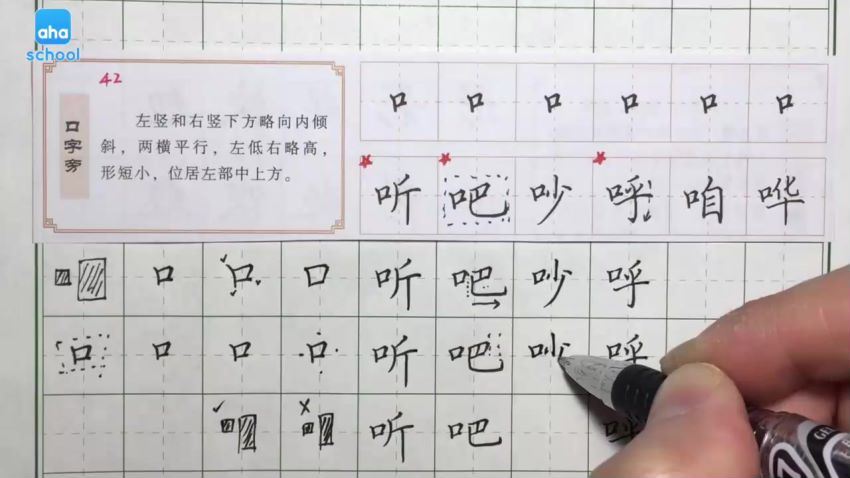 aha
school
42
口字旁
左竖和右竖下方略向内倾
斜，两横平行，左低右略高，
形短小，位居左部中上方。
口 口 口 口 口 口
听 吧 吵 呼 咱 哗
口 口 口 听 吧 吵 呼
口 口 口 口 听 吧 吵 呼
听 吧 呼